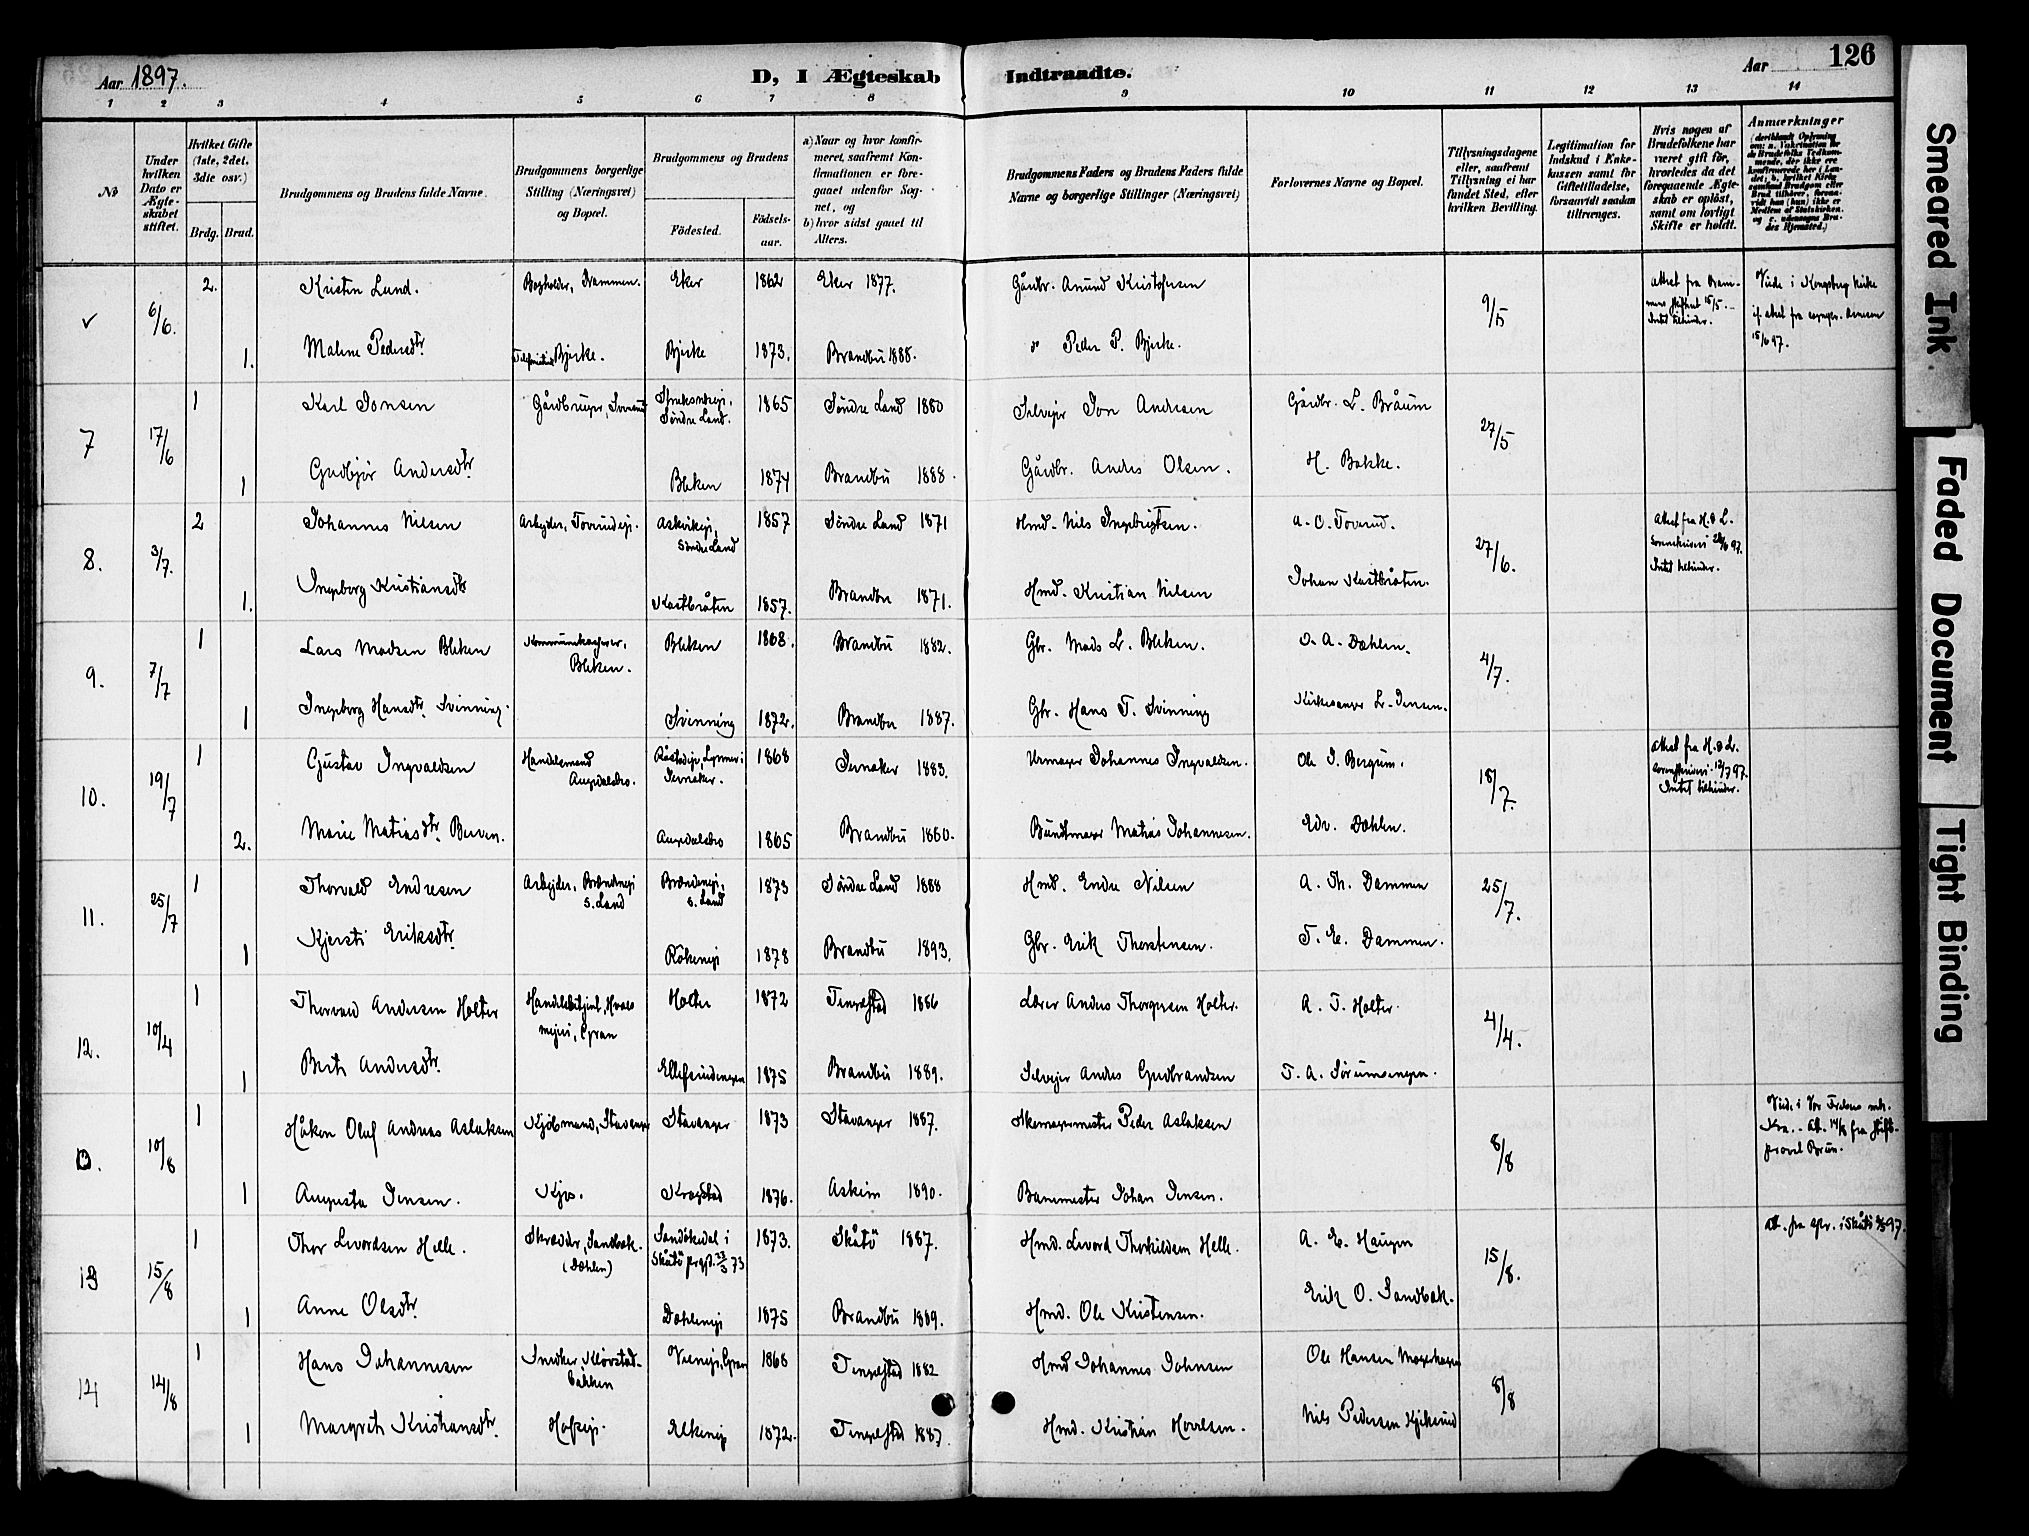 Aar 1897.
D, I Ægteskab Indtraadte.
Aar
126
1 2 3 4 5 6 7 8 9 10 11 12 13 14
No
Under hvilken Dato er Ægteskabet stiftet.
Hvilket Gifte (1ste, 2det, 3die osv.)
Brdg. Brud.
Brudgommens og Brudens fulde Navne.
Brudgommens borgerlige Stilling (Næringsvei) og Bopæl.
Brudgommens og Brudens
Födested.
Födselsaar.
a) Naar og hvor konfirmeret, saafremt Konfirmationen er foregaaet udenfor Sognet, og
b) hvor sidst gaaet til Alters.
Brudgommens Faders og Brudens Faders fulde Navne og borgerlige Stillinger (Næringsvei)
Forlovernes Navne og Bopæl.
Tillysningsdagene eller, saafremt Tillysning ei har fundet Sted, efter hvilken Bevilling.
Legitimation for Indskud i Enkekassen samt for Giftetilladelse, forsaavidt saadan tiltrænges.
Hvis nogen af Brudefolkene har været gift för, hvorledes da det foregaaende Ægteskab er oplöst, samt om lovligt Skifte er holdt.
Anmærkninger
6/6. 2. Kristen Lund. Bogholder, Drammen. Eker 1862 Eker 1877. Gårdbr. Anund Kristofersen 9/5
Attest fra Drammens skifteret 15/5 Intet tilhinder.
Viede i Kongsberg kirke
15/6 97.
1. Malene Pedersdtr Bjerke. Bjerke 1873. Brandbu 1888. Peder P. Bjerke.
7 17/6 1 Karl Jonsen Gårdbruger, Søndre Land. 1865 Søndre Land 1880 Selveier Jon Andersen Gårdbr. L. Bråum 27/5
1 Gudbjør Andersdtr Bleken 1874 Brandbu 1888. Gårdbr. Anders Olsen. H. Bakke.
8. 3/7. 2 Johannes Nilsen Arbejder, Toverudejr. Askvikejr, Søndre Land 1857 Søndre Land 1871 Hmd. Nils Ingebrigtsen. A. O. Toverud. 27/6.
Attest fra H. & L. Intet tilhinder.
1. Ingeborg Kristiansdtr Kastbråten 1857. Brandbu 1871. Hmd. Kristian Nilsen Johan Kastbråten.
9. 7/7 1 Lars Madsen Bleken Kommunekasserer, Bleken. Bleken 1868. Brandbu 1882. Gbr. Mads L. Bleken. O. A. Dæhlen. 4/7.
1 Ingeborg Hansdtr. Svinning. Svinning 1872. Brandbu 1887. Gbr. Hans T. Svinning Kirkesanger L. Jensen.
10. 19/7 1 Gustav Ingvaldsen Handelsmand Augedalsbro. Lynner i Jevnaker. 1868 Jevnaker 1883. Urmager Johannes Ingvaldsen. Ole I. Bergum. 18/7.
Attest fra H. & L. Sorenskriveri 12/7 97. Intet tilhinder.
2. Marie Matiasdtr. Berven. Augedalsbro 1865 Brandbu 1880. Bundtmager Matias Johannesen. Edv. Dæhlen.
11. 25/7 1 Thorvald Endresen Arbejder, S. Land S. Land 1873 Søndre Land 1888 Hmd. Endre Nilsen A. Th. Dammen 25/7.
1 Kjersti Eriksdtr. Røkenejr 1878 Brandbu 1893. Gbr. Erik Thorstensen. T. E. Dammen.
12. 10/4 1 Thorvald Andersen Holter Handelsbetjent, Hvals mejeri, Gran Holter 1872 Tingelstad 1886 Lærer Anders Thorgersen Holter. A. T. Holter. 4/4.
1 Berte Andersdtr. Ellefsrudengen 1875 Brandbu 1889. Selvejer Anders Gudbrandsen T. A. Sørumsengen.
10/8 1 Håkon Oluf Andreas Aslaksen Kjøbmand, Stavanger Stavanger 1873 Stavanger 1887. Skomagermester Peder Aslaksen 8/8
Viede i Vor Frelsers mh. Kra. - Att. 14/8 fra stiftsprovst Bruun.
1 Augusta Jensen. Kjos. Kragstad 1876. Askim 1890. Banemester Johan Jensen.
13 15/8 1 Thor Levordsen Helle. Skrædder, Sandbak. (Dæhlen) Sandåkedal i Skåtö prgjd. 23/3 73 1873. Skåtö 1887. Hmd. Levord Thorkildsen Helle. A. E. Haugen 15/8.
Att. fra spr. i Skåtö 97.
1 Anne Olsdtr. Dæhlenejr 1875 Brandbu 1889. Hmd. Ole Kristensen. Erik O. Sandbak.
14 14/8 1 Hans Johannesen Snedker Kløvstadbakken Vienejr, Gran 1868 Tingelstad 1882 Hmd Johannes Johnsen Ole Hansen 8/8
1 Margrete Kristiansdtr. Hofsejr. Alkenejr 1872. Tingelstad 1887. Hmd. Kristian Hovelsen. Nils Pedersen Kjiksrud
Smeared Ink
Faded Document
Tight Binding